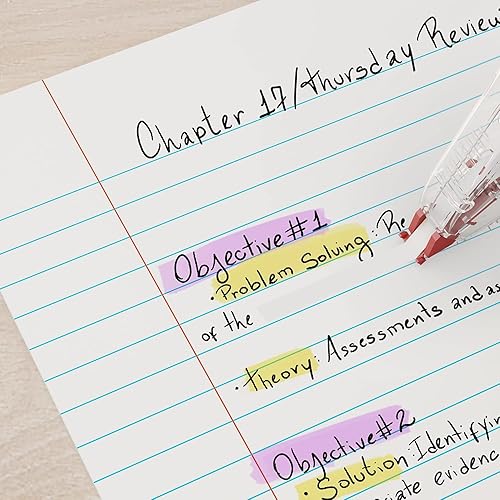 Chapter 17/Thursday Review
Objective #1
• Problem Solving: Re
of the
• Theory: Assessments and as
Objective #2
• Solution: Identifyin
evidenc